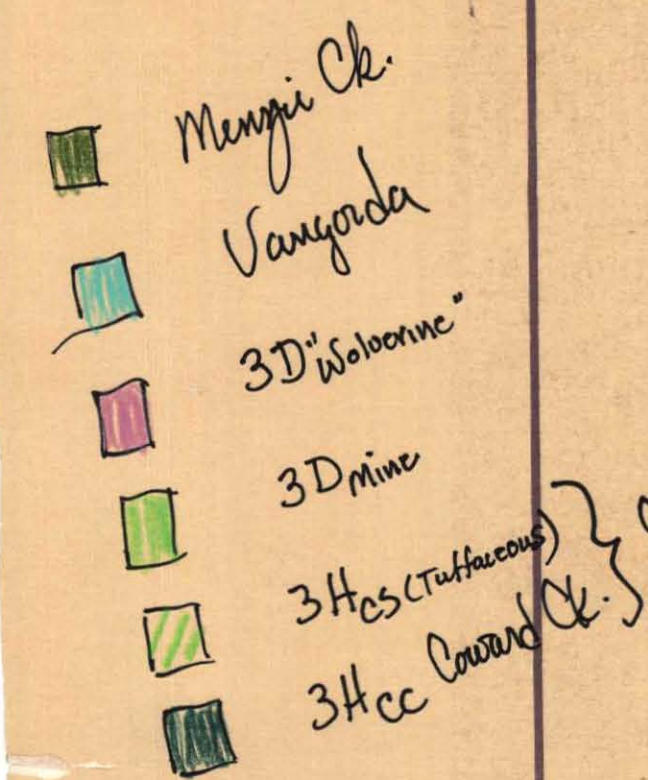 Menzie Ck.
Vangorda
3D "Wolverine"
3D mine
3H cs (Tuffaceous)
3H cc Coward Ck.